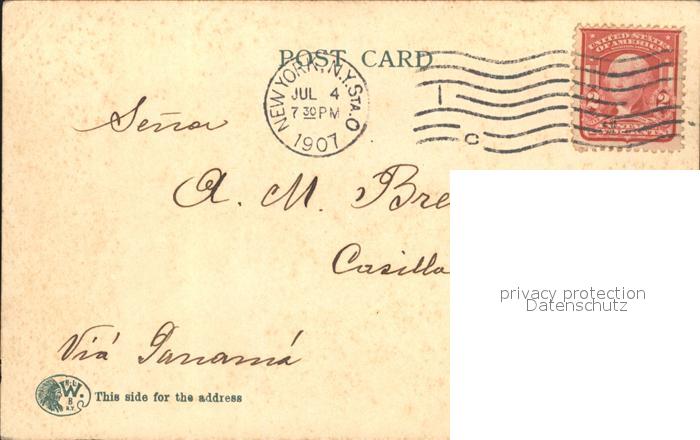 POST CARD
NEW YORK, N.Y. STA. O
JUL 4
7 30 PM
1907
C
UNITED STATES
OF AMERICA
2 2
Señor
A. M. Bre
Casilla
privacy protection
Datenschutz
Viá Panamá
W.
B
N.Y.
This side for the address